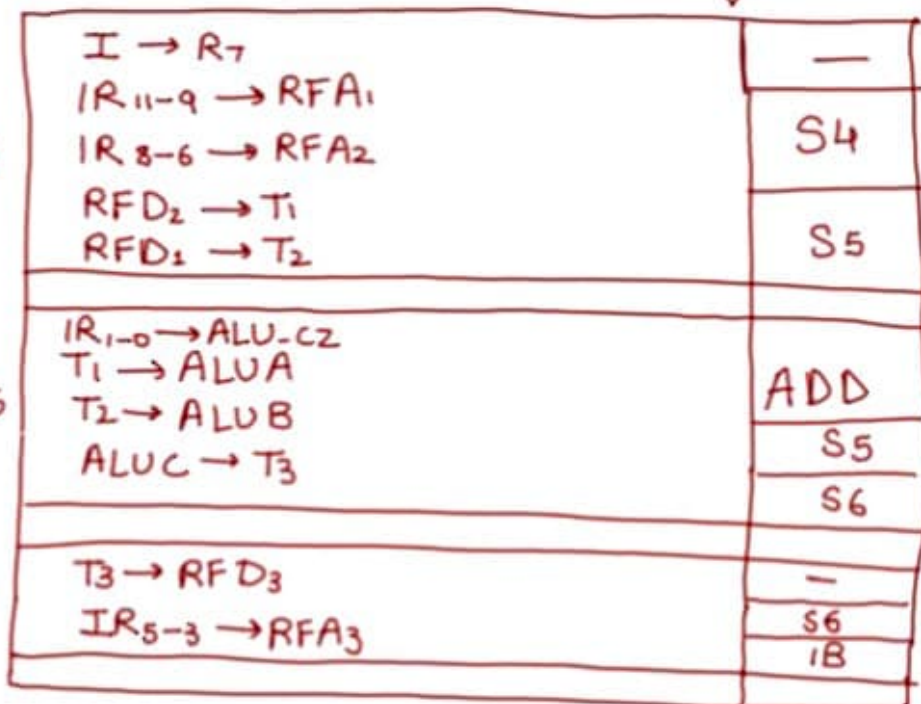 I → R7
—
IR11-9 → RFA1
IR 8-6 → RFA2
S4
RFD2 → T1
RFD1 → T2
S5
IR1-0 → ALU-CZ
T1 → ALUA
ADD
T2 → ALUB
S5
ALUC → T3
S6
T3 → RFD3
—
IR5-3 → RFA3
S6
1B